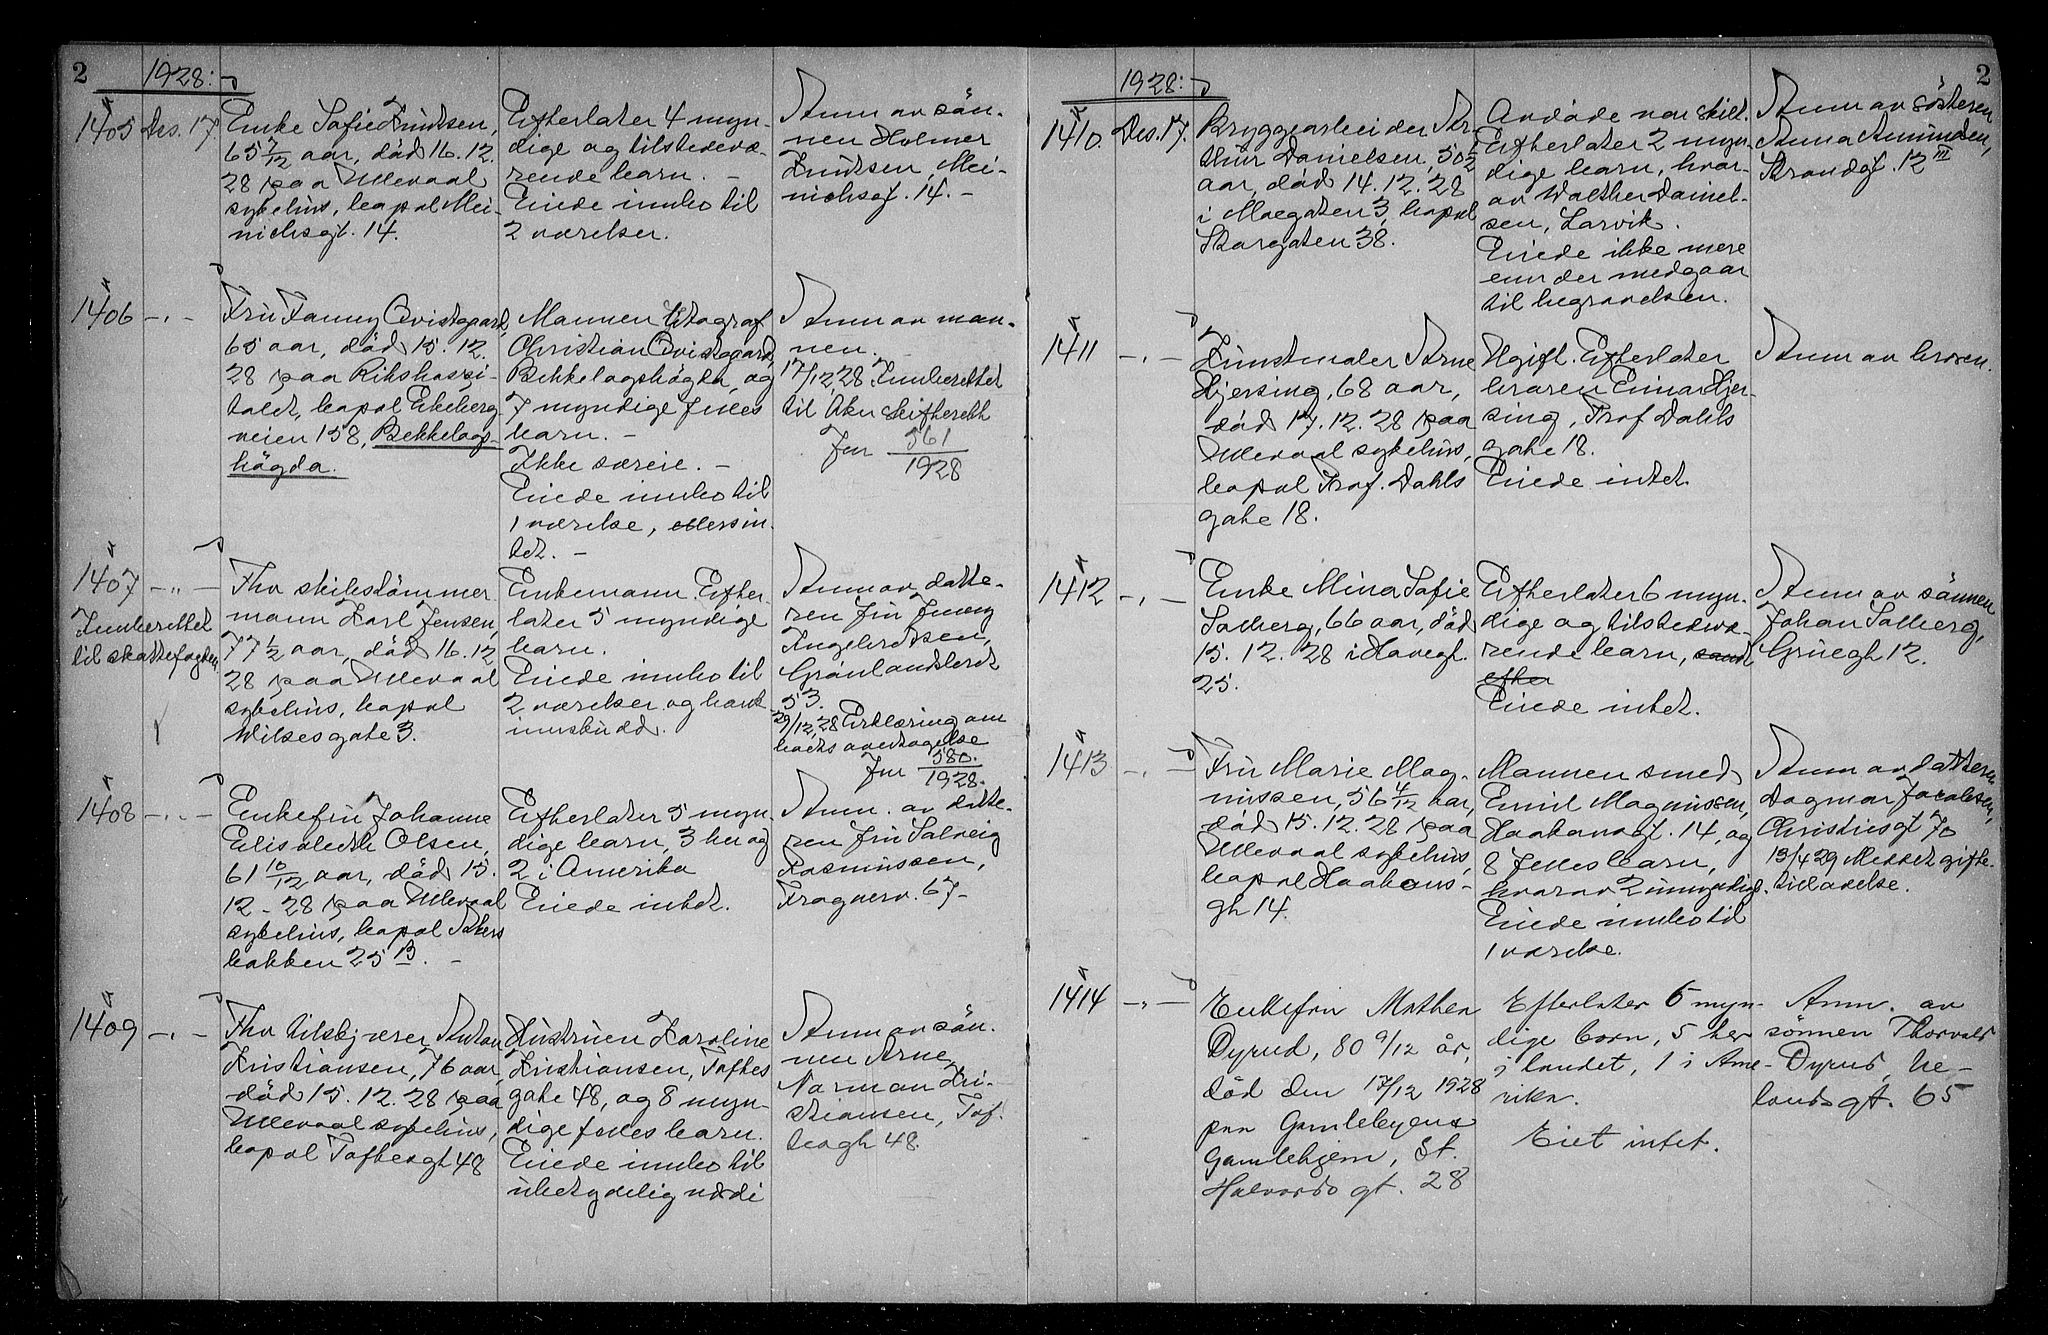 2
1928:
1405 Des. 17.
Enke Sofie Knudsen,
65 7/12 aar, död 16.12.
28 paa Ullevaal
sykehus, bopæl Mei-
nichsgt. 14.
Efterlater 4 myn-
dige og tilstedevæ-
rende barn. -
Eiede innbo til
2 værelser.
Anm av søn-
nen Holmer
Knudsen, Mei-
nichsgt. 14. -
1406 - " -
Fru Fanny Qvistgaard,
65 aar, död 15. 12.
28 paa Rikshospi-
talet, bopæl Ekeberg
veien 158, Bekkelags-
högda.
Mannen litograf
Christian Qvistgaard,
Bekkelagshögda, og
7 myndige felles
barn. -
Ikke særeie. -
Eiede innbo til
1 værelse, ellers in-
tet. -
Anm av man-
nen.
17/12 28 Innberettet
til Aker skifterett
Jnr 561
1928
1407 - " -
Innberettet
til skattefogden
Fhv skibstömmer
mann Karl Jensen,
77 1/2 aar, död 16.12
28 paa Ullevaal
sykehus, bopæl
Wilsesgate 3.
Enkemann. Efter-
later 5 myndige
barn.
Eiede innbo til
2 værelser og hans
innskudd.
Anm av datte-
ren fru Jenny
Ingebretsen,
Grönlandsleret
53.
29/12 28 Erklæring om
boets overtagelse
Jnr 580.
1928.
1408 - " -
Enkefru Johanne
Elisabeth Olsen,
61 10/12 aar, död 15.
12 - 28 paa Ullevaal
sykehus, bopæl Akers
bakken 25 B. -
Efterlater 5 myn-
dige barn, 3 her og
2 i Amerika
Eiede intet.
Anm. av datte-
ren fru Solveig
Rasmussen,
Frognerv. 67 -
1409 - " -
Fhv tilsbjærer Anton
Kristiansen, 76 aar,
död 15.12.28 paa
Ullevaal sykehus,
bopæl Toftesgt 48
Hustruen Karoline
Kristiansen, Toftes
gate 48, og 8 myn-
dige felles barn.
Eiede innbo til
ubetydelig værdi
Anm av søn-
nen Arne
Norman Kri-
stiansen, Tof-
tesgt 48.
2
1928:
1410. Des. 17.
Bryggearbeider Ar-
thur Danielsen, 50 1/2
aar, död 14.12.28
i Moegaten 3, bopæl
Storgaten 38.
Avdöde var skilt.
Efterlater 2 myn-
dige barn, hvor-
av Walther Daniel-
sen, Larvik.
Eiede ikke mere
enn der medgaar
til begravelsen.
Anm av søsteren
Anna Amundsen,
Strandgt. 12 III
1411 - " -
Kunstmaler Arne
Hjersing, 68 aar,
död 17.12.28 paa
Ullevaal sykehus,
bopæl Prof. Dahls
gate 18.
Ugift. Efterlater
broren Einar Hjer-
sing, Prof Dahls
gate 18.
Eiede intet.
Anm av broren.
1412 - " -
Enke Mina Sofie
Solberg, 66 aar, död
15. 12. 28 i Havegt.
25.
Efterlater 6 myn-
dige og tilstedevæ-
rende barn, samt
efter
Eiede intet.
Anm av sønnen
Johan Solberg,
Grüegt 12.
1413 - " -
Fru Marie Mag-
nussen, 56 4/12 aar,
död 15.12.28 paa
Ullevaal sykehus,
bopæl Haakons-
gt 14.
Mannen smed
Emil Magnussen,
Haakonsgt. 14, og
8 felles barn,
hvorav 2 umyndige.
Eiede innbo til
1 værelse.
Anm av datteren
Dagmar Jacobsen,
Christiesgt 70
13/4 29 Meddelt gifte-
tilladelse.
1414 - " -
Enkefru Mathea
Dyrud, 80 9/12 år,
död den 17/12 1928
paa Gamlebyens
Gamlehjem, St.
Halvards gt. 28
Efterlater 6 myn-
dige barn, 5 her
i landet, 1 i Ame-
rika.
Eiet intet.
Anm. av
sönnen Thorvald
Dyrud, He-
lands gt. 65